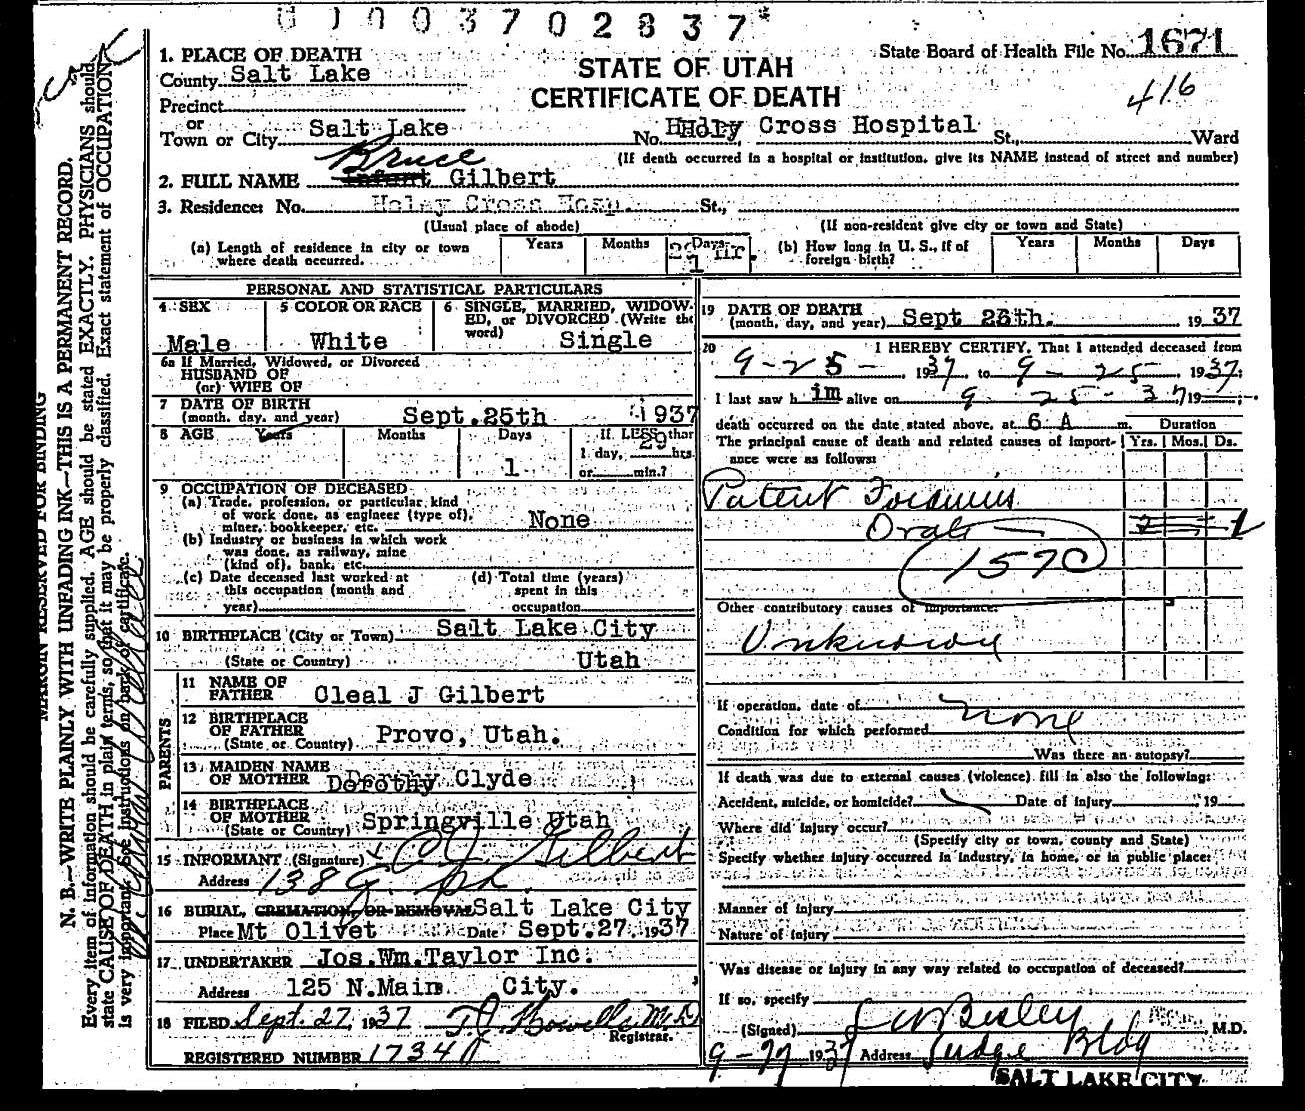 0 1 0 0 3 7 0 2 8 3 7
1. PLACE OF DEATH
State Board of Health File No. 1671
County Salt Lake
STATE OF UTAH
CERTIFICATE OF DEATH
416
Precinct
or
Town or City Salt Lake No. Holy Cross Hospital St., Ward
(If death occurred in a hospital or institution, give its NAME instead of street and number)
Bruce
2. FULL NAME Infant Gilbert
3. Residence: No. Holey Cross Hosp. St.,
(Usual place of abode) (If non-resident give city or town and State)
(a) Length of residence in city or town where death occurred. Years Months Days 29 hr. 1
(b) How long in U. S., if of foreign birth? Years Months Days
PERSONAL AND STATISTICAL PARTICULARS
4 SEX Male
5 COLOR OR RACE White
6 SINGLE, MARRIED, WIDOWED, or DIVORCED (Write the word) Single
6a If Married, Widowed, or Divorced
HUSBAND OF
(or) WIFE OF
7 DATE OF BIRTH
(month, day, and year) Sept.25th 1937
8 AGE Years Months Days 1 If LESS than 1 day, 29 hrs. or min.?
9 OCCUPATION OF DECEASED
(a) Trade, profession, or particular kind
of work done, as engineer (type of),
miner, bookkeeper, etc. None
(b) Industry or business in which work
was done, as railway, mine
(kind of), bank, etc.
(c) Date deceased last worked at
this occupation (month and
year)
(d) Total time (years)
spent in this
occupation
10 BIRTHPLACE (City or Town) Salt Lake City
(State or Country) Utah
PARENTS
11 NAME OF
FATHER Cleal J Gilbert
12 BIRTHPLACE
OF FATHER
(State or Country) Provo, Utah.
13 MAIDEN NAME
OF MOTHER Dorothy Clyde
14 BIRTHPLACE
OF MOTHER
(State or Country) Springville Utah
15 INFORMANT (Signature) C J Gilbert
Address 138 G. St.
16 BURIAL, CREMATION, OR REMOVAL Salt Lake City
Place Mt Olivet Date Sept.27, 1937
17 UNDERTAKER Jos.Wm.Taylor Inc.
Address 125 N.Main City.
18 FILED Sept. 27, 1937 T J Howells M.D.
Registrar.
REGISTERED NUMBER 1734
19 DATE OF DEATH
(month, day, and year) Sept 26th. 1937
20 I HEREBY CERTIFY, That I attended deceased from
9-25- 1937, to 9-25, 1937;
I last saw him alive on 9 25-37 19
death occurred on the date stated above, at 6 A m.
Duration
The principal cause of death and related causes of importance were as follows: Yrs. Mos. Ds.
Patent Foramus
Ovale 1
1570
Other contributory causes of importance:
Unknown
If operation, date of none
Condition for which performed
Was there an autopsy?
If death was due to external causes (violence) fill in also the following:
Accident, suicide, or homicide? Date of injury 19
Where did injury occur?
(Specify city or town, county and State)
Specify whether injury occurred in industry, in home, or in public place:
Manner of injury
Nature of injury
Was disease or injury in any way related to occupation of deceased?
If so, specify
(Signed) , M.D.
9-27 1937 Address Judge Bldg
SALT LAKE CITY
MARGIN RESERVED FOR BINDING
N. B.—WRITE PLAINLY WITH UNFADING INK—THIS IS A PERMANENT RECORD.
Every item of information should be carefully supplied. AGE should be stated EXACTLY. PHYSICIANS should
state CAUSE OF DEATH in plain terms, so that it may be properly classified. Exact statement of OCCUPATION
is very important. See instructions on back of certificate.